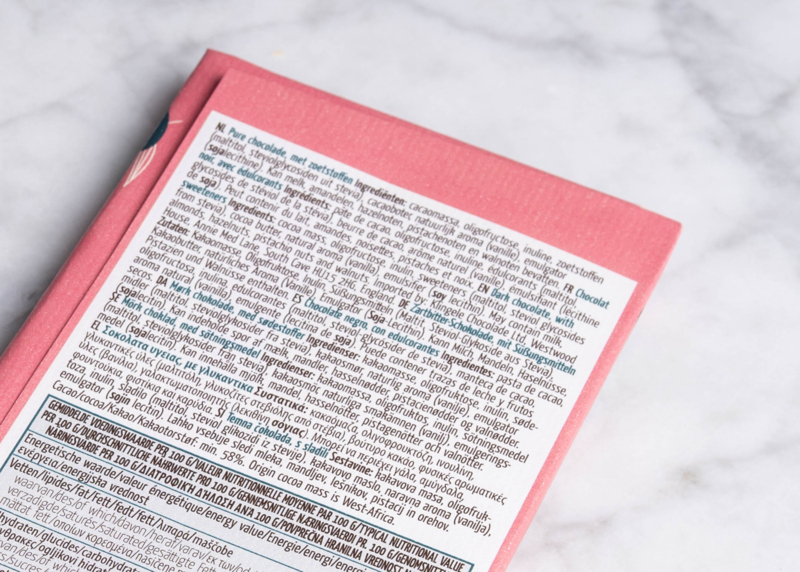 NL Pure chocolade, met zoetstoffen Ingrediënten: cacaomassa, oligofructose, inuline, zoetstoffen
(maltitol, steviolglycosiden uit stevia), cacaoboter, natuurlijk aroma (vanille), emulgator
(sojalecithine). Kan melk, amandelen, hazelnoten, pistachenoten en walnoten bevatten. FR Chocolat
noir, avec édulcorants Ingrédients: pâte de cacao, oligofructose, inuline, édulcorants (maltitol,
glycosides de stéviol de stévia), beurre de cacao, arôme naturel (vanille), émulsifiant (lécithine
de soja). Peut contenir du lait, amandes, noisettes, pistaches et noix. EN Dark chocolate, with
sweeteners Ingredients: cocoa mass, oligofructose, inulin, sweeteners (maltitol, steviol glycosides
from stevia), cocoa butter, natural aroma (vanilla), emulsifier (soy lecithin). May contain milk,
almonds, hazelnuts, pistachio nuts and walnuts. Imported by: Chocolate Ltd, Westwood
House, Annie Med Lane, South Cave HU15 2HG, England. DE Zartbitter-Schokolade, mit Süßungsmitteln
Zutaten: Kakaomasse, Oligofructose, Inulin, Süßungsmittel (Maltit, Steviol Glykoside aus Stevia),
Kakaobutter, natürliches Aroma (Vanille), Emulgator (Soja Lecithin). Kann Milch, Mandeln, Haselnüsse,
Pistazien und Walnüsse enthalten. ES Chocolate negro, con edulcorantes Ingredientes: pasta de cacao,
oligofructosa, inulina, edulcorantes (maltitol, de stevia), manteca de cacao,
aroma natural emulgente (lecitina de soja). Puede contener trazas de leche y frutos
secos. DA Mørk chokolade, med sødestoffer Ingredienser: kakaomasse, oligofruktose, inulin, søde-
midler (maltitol, steviolglykosider fra stevia), kakaosmør, naturlig aroma (vanilje), emulgator
(sojalecitin). Kan indeholde spor af mælk, mandler, hasselnødder, pistacienødder og valnødder.
SE Mörk choklad, med sötningsmedel Ingredienser: kakaomassa, oligofruktos, inulin, sötningsmedel
(maltitol, steviolglykosider från stevia), kakaosmör, naturliga smakämnen (vanilj), emulgerings-
medel (sojalecitin). Kan innehålla mjölk, mandel, hasselnötter, pistagenötter och valnötter.
EL Σοκολάτα υγείας, με γλυκαντικά Συστατικά: κακαόμαζα, ολιγοφρουκτόζη, ινουλίνη,
γλυκαντικές ύλες (μαλτιτόλη, γλυκοζίτες στεβιόλης από στέβια), βούτυρο κακάο, φυσικές αρωματικές
ύλες (βανίλια), γαλακτωματοποιητή (λεκιθίνη σόγιας). Μπορεί να περιέχει γάλα, αμύγδαλα,
φουντούκια, φιστίκι και καρύδια. SI Temna čokolada, s sladili Sestavine: kakavova masa, oligofruk-
toza, inulin, sladilo (maltitol, steviol glikozid iz stevije), kakavovo maslo, naravna aroma (vanilja),
emulgator (sojin lecitin). Lahko vsebuje sledi mleka, mandljev, lešnikov, pistacij in orehov.
Cacao/cocoa/kakao/kakaotørstof: min. 58%. Origin cocoa mass is West-Africa.
GEMIDDELDE VOEDINGSWAARDE PER 100 G/VALEUR NUTRITIONNELLE MOYENNE PAR 100 G/TYPICAL NUTRITIONAL VALUE
PER 100 G/DURCHSCHNITTLICHE NÄHRWERTE PRO 100 G/GENNEMSNITLIGE NÆRINGSVÆRDI PR. 100 G/GENOMSNITTLIGT
NÄRINGSVÄRDE PER 100 G/ΔΙΑΤΡΟΦΙΚΗ ΔΗΛΩΣΗ ΑΝΑ 100 G/POVPREČNA HRANILNA VREDNOST
Energetische waarde/valeur énergétique/energy value/Energie/energi/energi/
ενέργεια/energijska vrednost
Vetten/lipides/fat/Fett/fedt/fett/λιπαρά/maščobe
waarvan/des/of which/davon/heraf/varav/εκ των
verzadigde/saturés/saturated/gesättigte
mättat fett